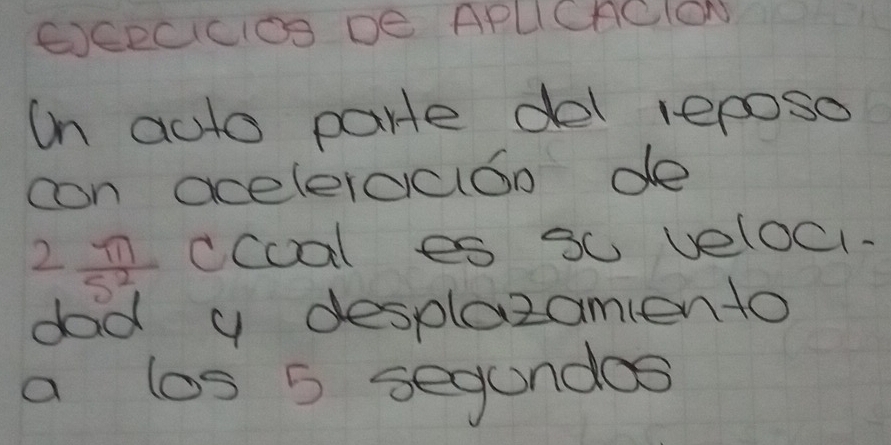 EJERCICIOS DE APLICACION
Un auto parte del reposo
con aceleración de
2 m/s² ¿Cual es su veloci-
dad y desplazamiento
a los 5 segundos